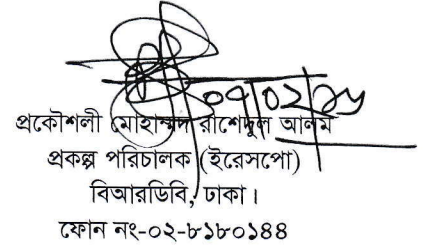 ০৭/০২/১৮
প্রকৌশলী মোহাম্মদ রাশেদুল আলম
প্রকল্প পরিচালক (ইরেসপো)
বিআরডিবি, ঢাকা।
ফোন নং-০২-৮১৮০১৪৪